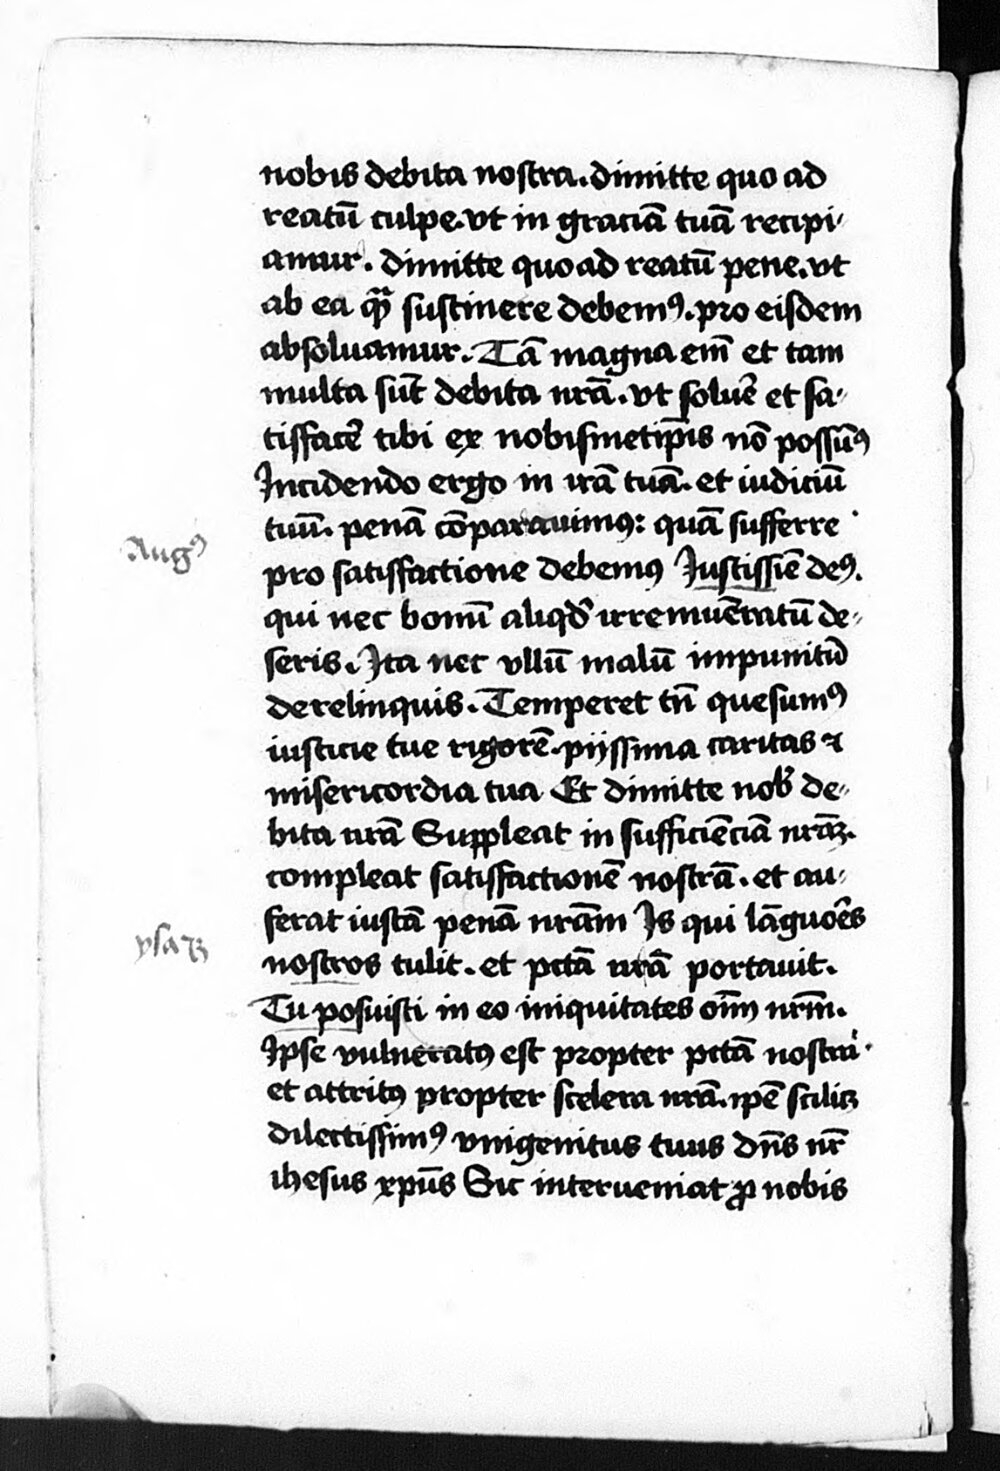 nobis debita nostra. dimitte quo ad
reatū culpe. vt in graciā tuā recipi-
amur. dimitte quo ad reatū pene. vt
ab ea quā sustinere debemꝰ. pro eisdem
absoluamur. Tā magna em̄ et tam
multa sūt debita nrā. vt soluē et sa-
tisfacē tibi ex nobismetip̄is nō possūꝰ
Incidendo ergo in irā tuā. et iudiciū
tuū. penā cōparauimꝰ: quā sufferre
Augꝰ
pro satisfactione debemꝰ Iustissīe deꝰ.
qui nec bonū aliqd̛ irremuēratū de-
seris. Ita nec vllū malū impunitū
derelinquis. Temperet tn̄ quesumꝰ
iusticie tue rigorē. piissima caritas ⁊
misericordia tua Et dimitte nob̛ de-
bita nrā Suppleat in sufficiēciā nrāꝫ.
compleat satisfactionē nostrā. et au-
ferat iustā penā nrām Is qui lāguoēs
ysaꝫ
nostros tulit. et pctā nrā portauit.
Tu posuisti in eo iniquitates oīm nrm̄.
Ipse vulneratꝰ est propter pctā nostra.
et attritꝰ propter scelera nrā. ip̄e scilicꝫ
dilectissimꝰ vnigenitus tuus dn̄s nr̄
ihesus xp̄us Sic interueniat ꝓ nobis